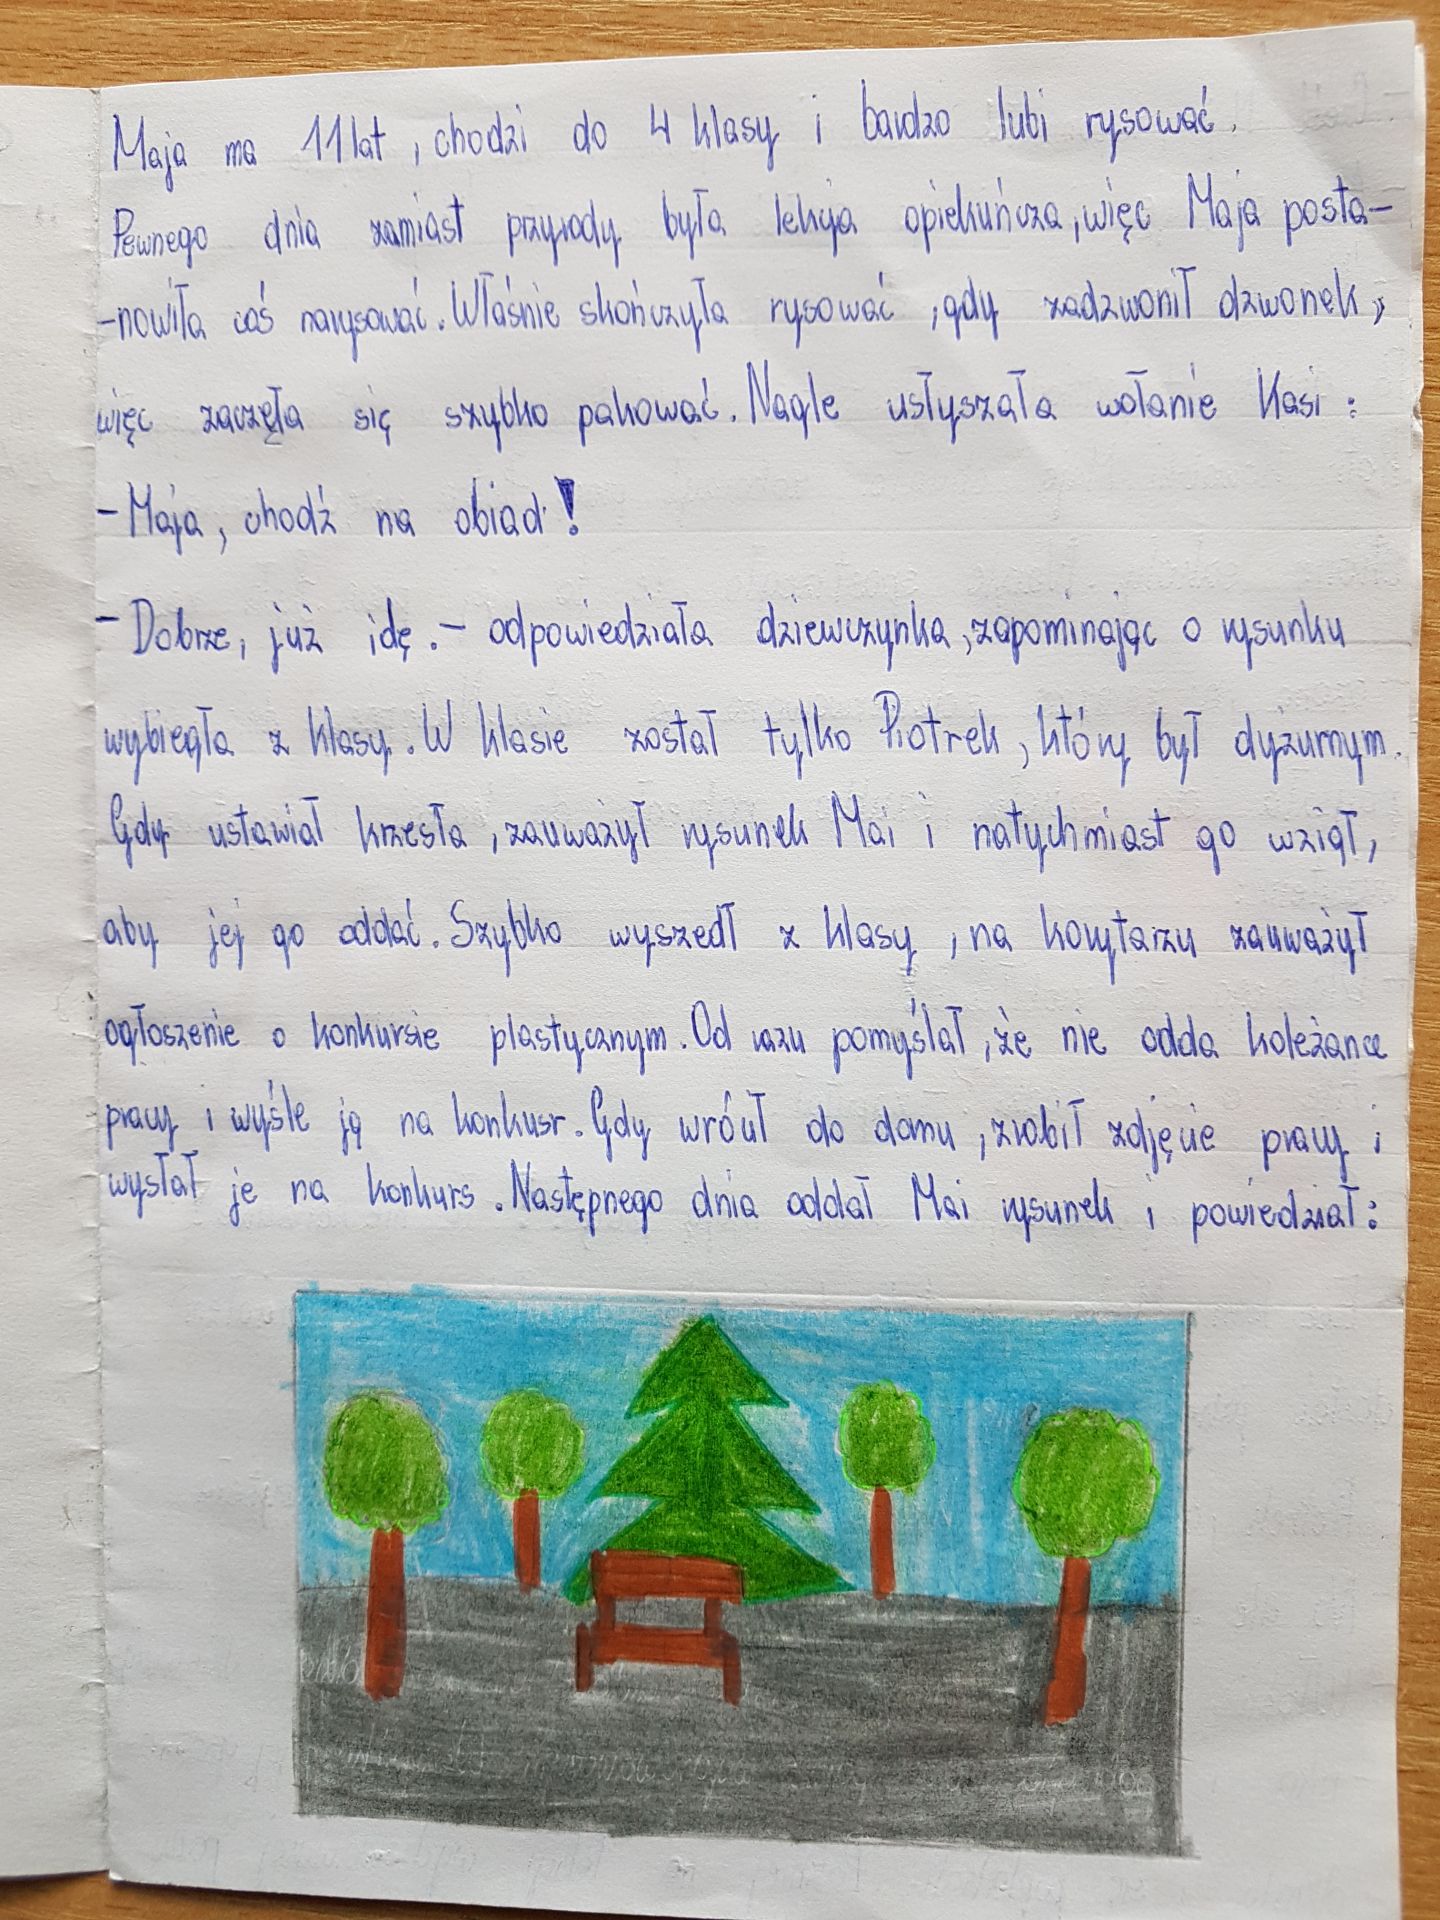 Maja ma 11 lat, chodzi do 4 klasy i bardzo lubi rysować.
Pewnego dnia zamiast przyrody była lekcja opiekuńcza, więc Maja posta-
-nowiła coś narysować. Właśnie skończyła rysować, gdy zadzwonił dzwonek,
więc zaczęła się szybko pakować. Nagle usłyszała wołanie Kasi:
- Maja, chodź na obiad!
- Dobrze, już idę. - odpowiedziała dziewczynka, zapominając o rysunku
wybiegła z klasy. W klasie został tylko Piotrek, który był dyżurnym.
Gdy ustawiał krzesła, zauważył rysunek Mai i natychmiast go wziął,
aby jej go oddać. Szybko wyszedł z klasy, na korytarzu zauważył
ogłoszenie o konkursie plastycznym. Od razu pomyślał, że nie odda koleżance
pracy i wyśle ją na konkusr. Gdy wrócił do domu, zrobił zdjęcie pracy i
wysłał je na konkurs. Następnego dnia oddał Mai rysunek i powiedział: